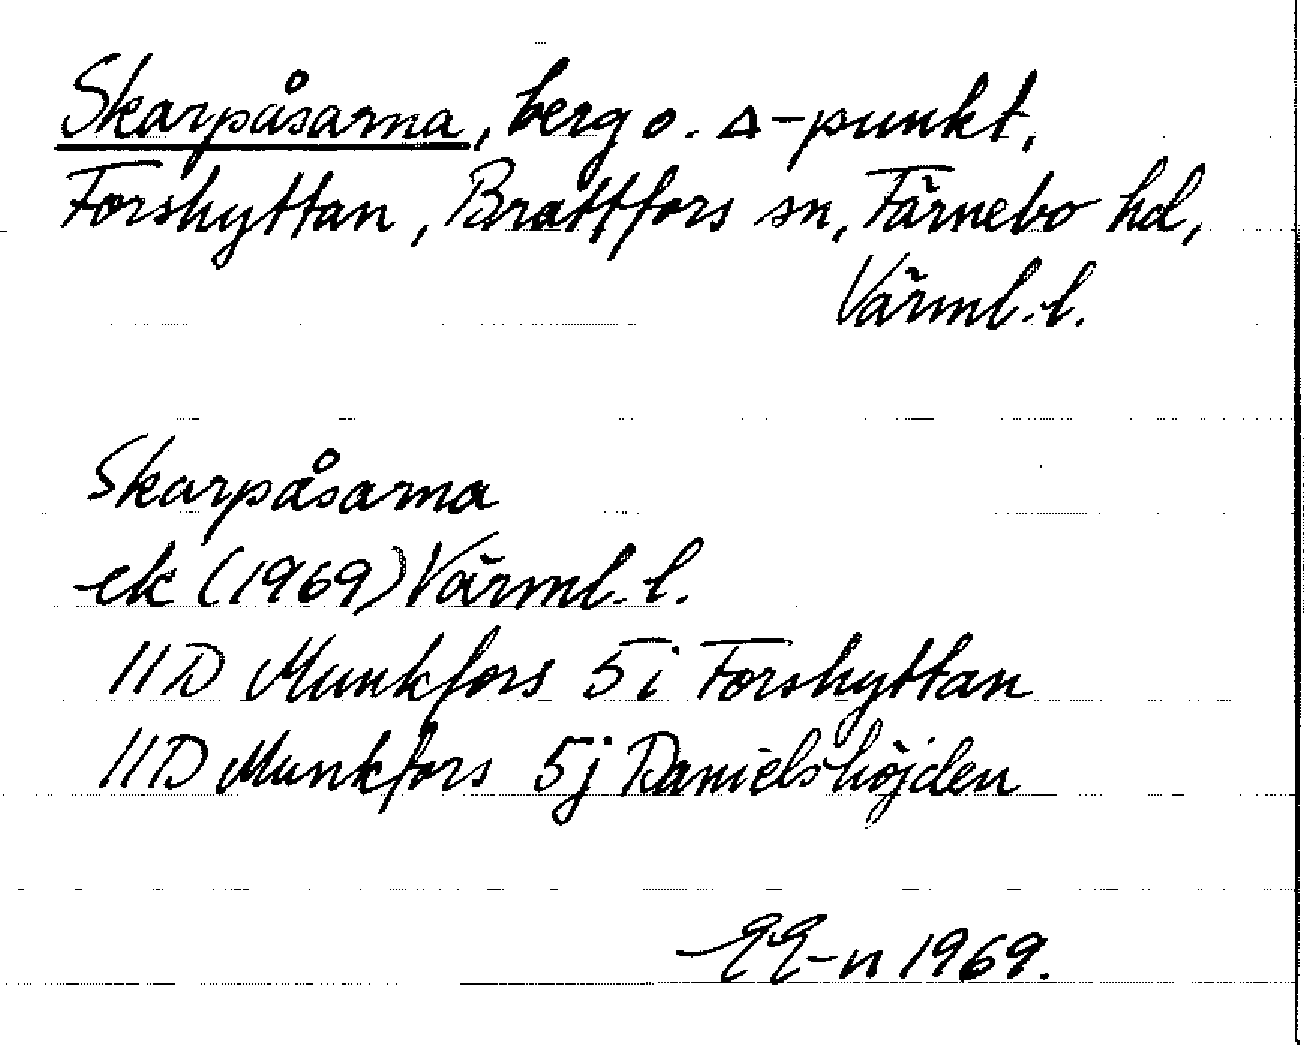 Skarpåsarna, berg o. Δ-punkt,
Forshyttan, Brattfors sn, Färnebo hd,
Värml. l.
Skarpåsarna
ek (1969) Värml. l.
11D Munkfors 5i Forshyttan
11D Munkfors 5j Danielshöjden
EE-n 1969.